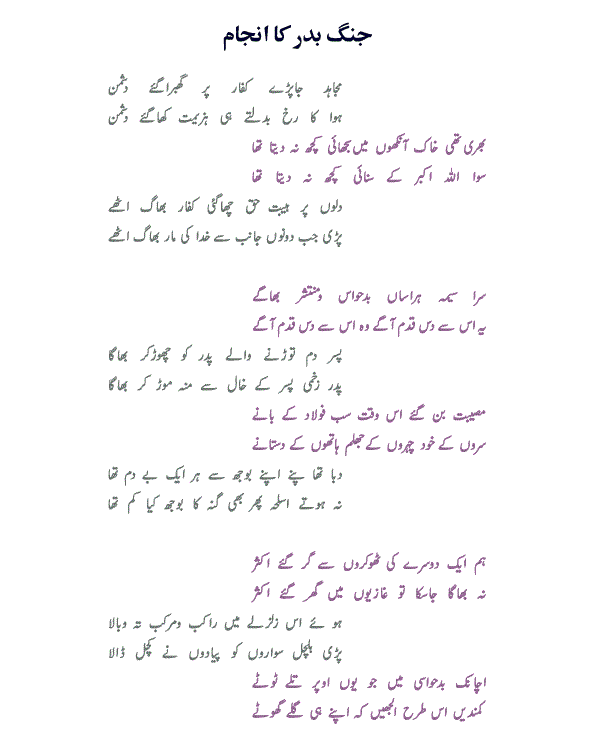 جنگ بدر کا انجام
مجاہد جاپڑے کفار پر گھبراگئے دشمن
ہوا کا رخ بدلتے ہی ہزیمت کھاگئے دشمن
بھری تھی خاک آنکھوں میں سجھائی کچھ نہ دیتا تھا
سوا اللہ اکبر کے سنائی کچھ نہ دیتا تھا
دلوں پر ہیبت حق چھاگئی کفار بھاگ اٹھے
پڑی جب دونوں جانب سے خدا کی مار بھاگ اٹھے
سرا سیمہ ہراساں بدحواس ومنتشر بھاگے
یہ اس سے دس قدم آگے وہ اس سے دس قدم آگے
پسر دم توڑنے والے پدر کو چھوڑکر بھاگا
پدر زخمی پسر کے خال سے منہ موڑ کر بھاگا
مصیبت بن گئے اس وقت سب فولاد کے بانے
سروں کے خود چہروں کے جھلم ہاتھوں کے دستانے
دبا تھا پنے اپنے بوجھ سے ہر ایک بے دم تھا
نہ ہوتے اسلحہ پھر بھی گنہ کا بوجھ کیا کم تھا
ہم ایک دوسرے کی ٹھوکروں سے گر گئے اکثر
نہ بھاگا جاسکا تو غازیوں میں گھر گئے اکثر
ہو ئے اس زلزلے میں راکب ومرکب تہ وبالا
پڑی ہلچل سواروں کو پیادوں نے کچل ڈالا
اچانک بدحواسی میں جو یوں اوپر تلے ٹوٹے
کمندیں اس طرح الجھیں کہ اپنے ہی گلے گھوٹے